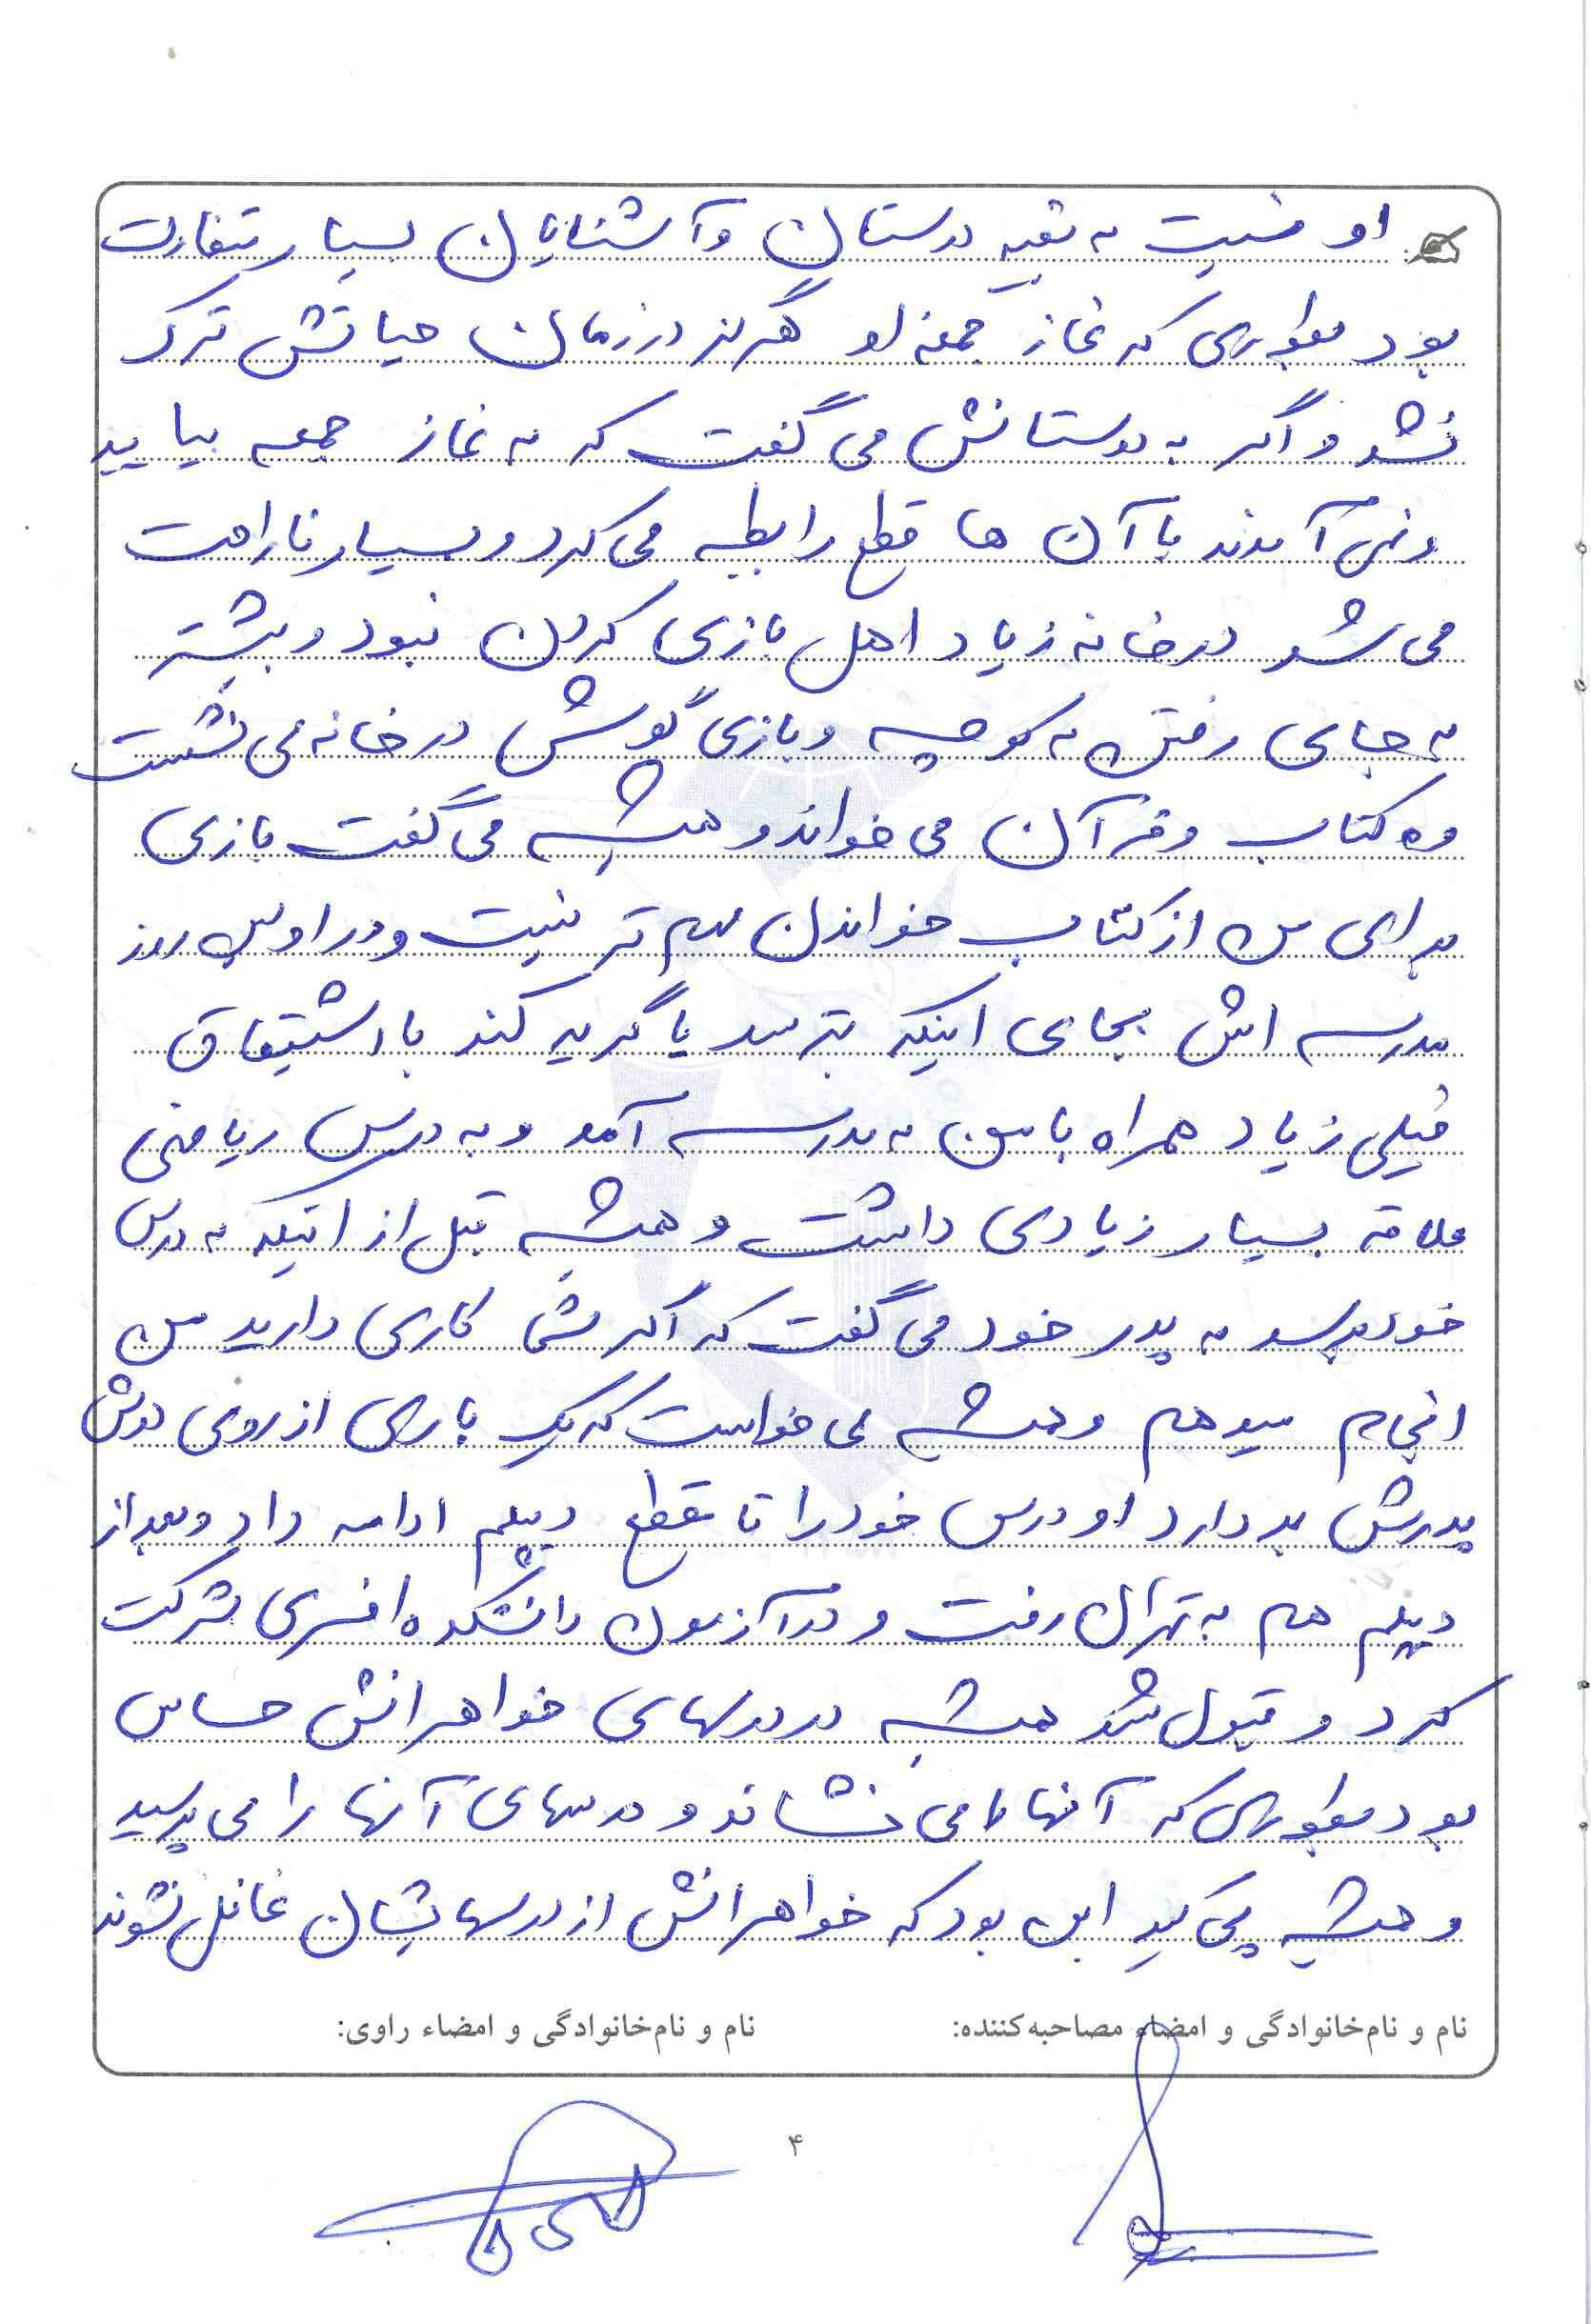 او نسبت به بقیه دوستان و آشنایان بسیار متفاوت
بود بطوری که نماز جمعه او هرگز در زمان حیاتش ترک
نشد و اگر به دوستانش می گفت که به نماز جمعه بیایید
ونمی آمدند با آن ها قطع رابطه می کرد و بسیار ناراحت
می شد در خانه زیاد اهل بازی کردن نبود و بیشتر
به جای رفتن به کوچه و بازی گوشی در خانه می نشست
و کتاب و قرآن می خواند و همیشه می گفت بازی
برای من از کتاب خواندن مهم تر نیست و در اولین روز
مدرسه اش بجای اینکه بترسد یا گریه کند با اشتیاق
خیلی زیاد همراه با من به مدرسه آمد و به درس ریاضی
علاقه بسیار زیادی داشت و همیشه قبل از اینکه به درس
خود برسد به پدر خود می گفت که اگر شما کاری دارید من
انجام میدهم و همیشه می خواست که یک باری از روی دوش
پدرش بردارد او درس خود را تا مقطع دیپلم ادامه داد و بعد از
دیپلم هم به تهران رفت و در آزمون دانشکده افسری شرکت
کرد و قبول شد همیشه در درسهای خواهرانش حساس
بود بطوری که آنها را می نشاند و درسهای آنها را می پرسید
و همیشه پی گیر این بود که خواهرانش از درسهایشان غافل نشوند
نام و نام‌خانوادگی و امضاء مصاحبه‌کننده:
نام و نام‌خانوادگی و امضاء راوی:
۴